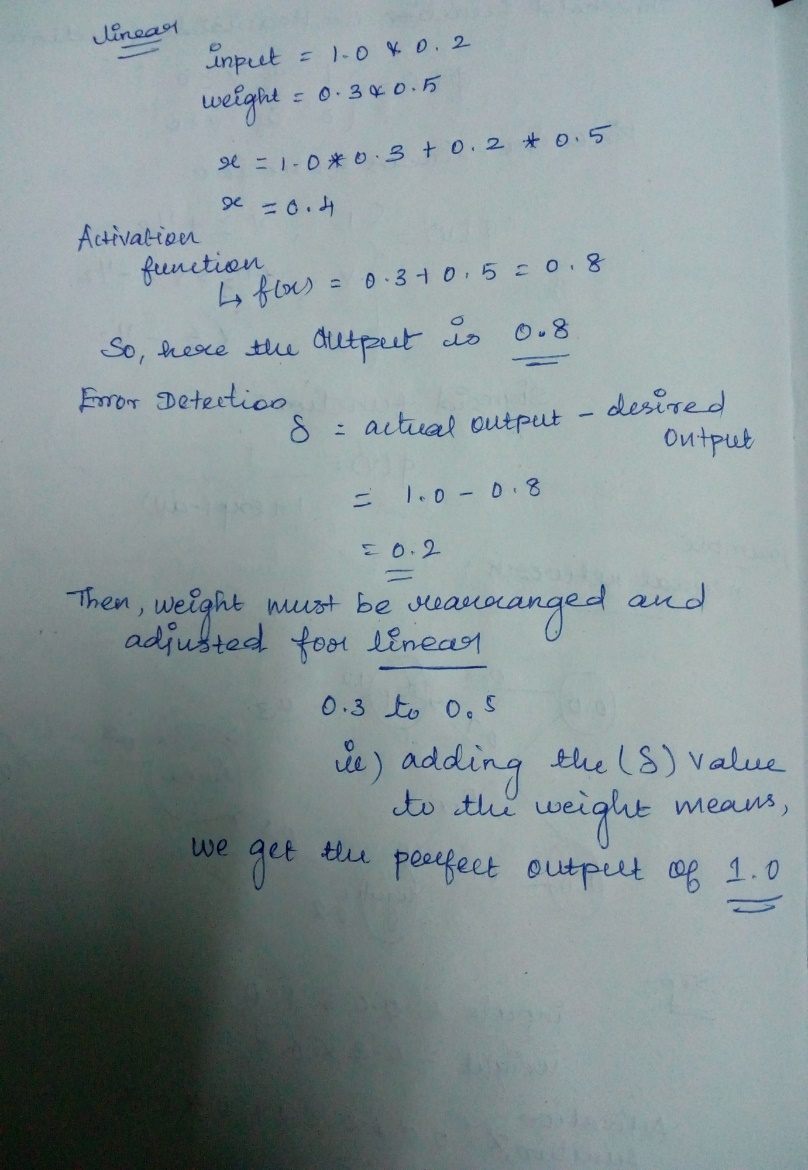 linear
input = 1.0 & 0.2
weight = 0.3 & 0.5
x = 1.0 * 0.3 + 0.2 * 0.5
x = 0.4
Activation
function
↳ f(x) = 0.3 + 0.5 = 0.8
So, here the output is 0.8
Error Detection
δ = actual output - desired
output
= 1.0 - 0.8
= 0.2
Then, weight must be rearranged and
adjusted for linear
0.3 to 0.5
ie) adding the (δ) value
to the weight means,
we get the perfect output of 1.0